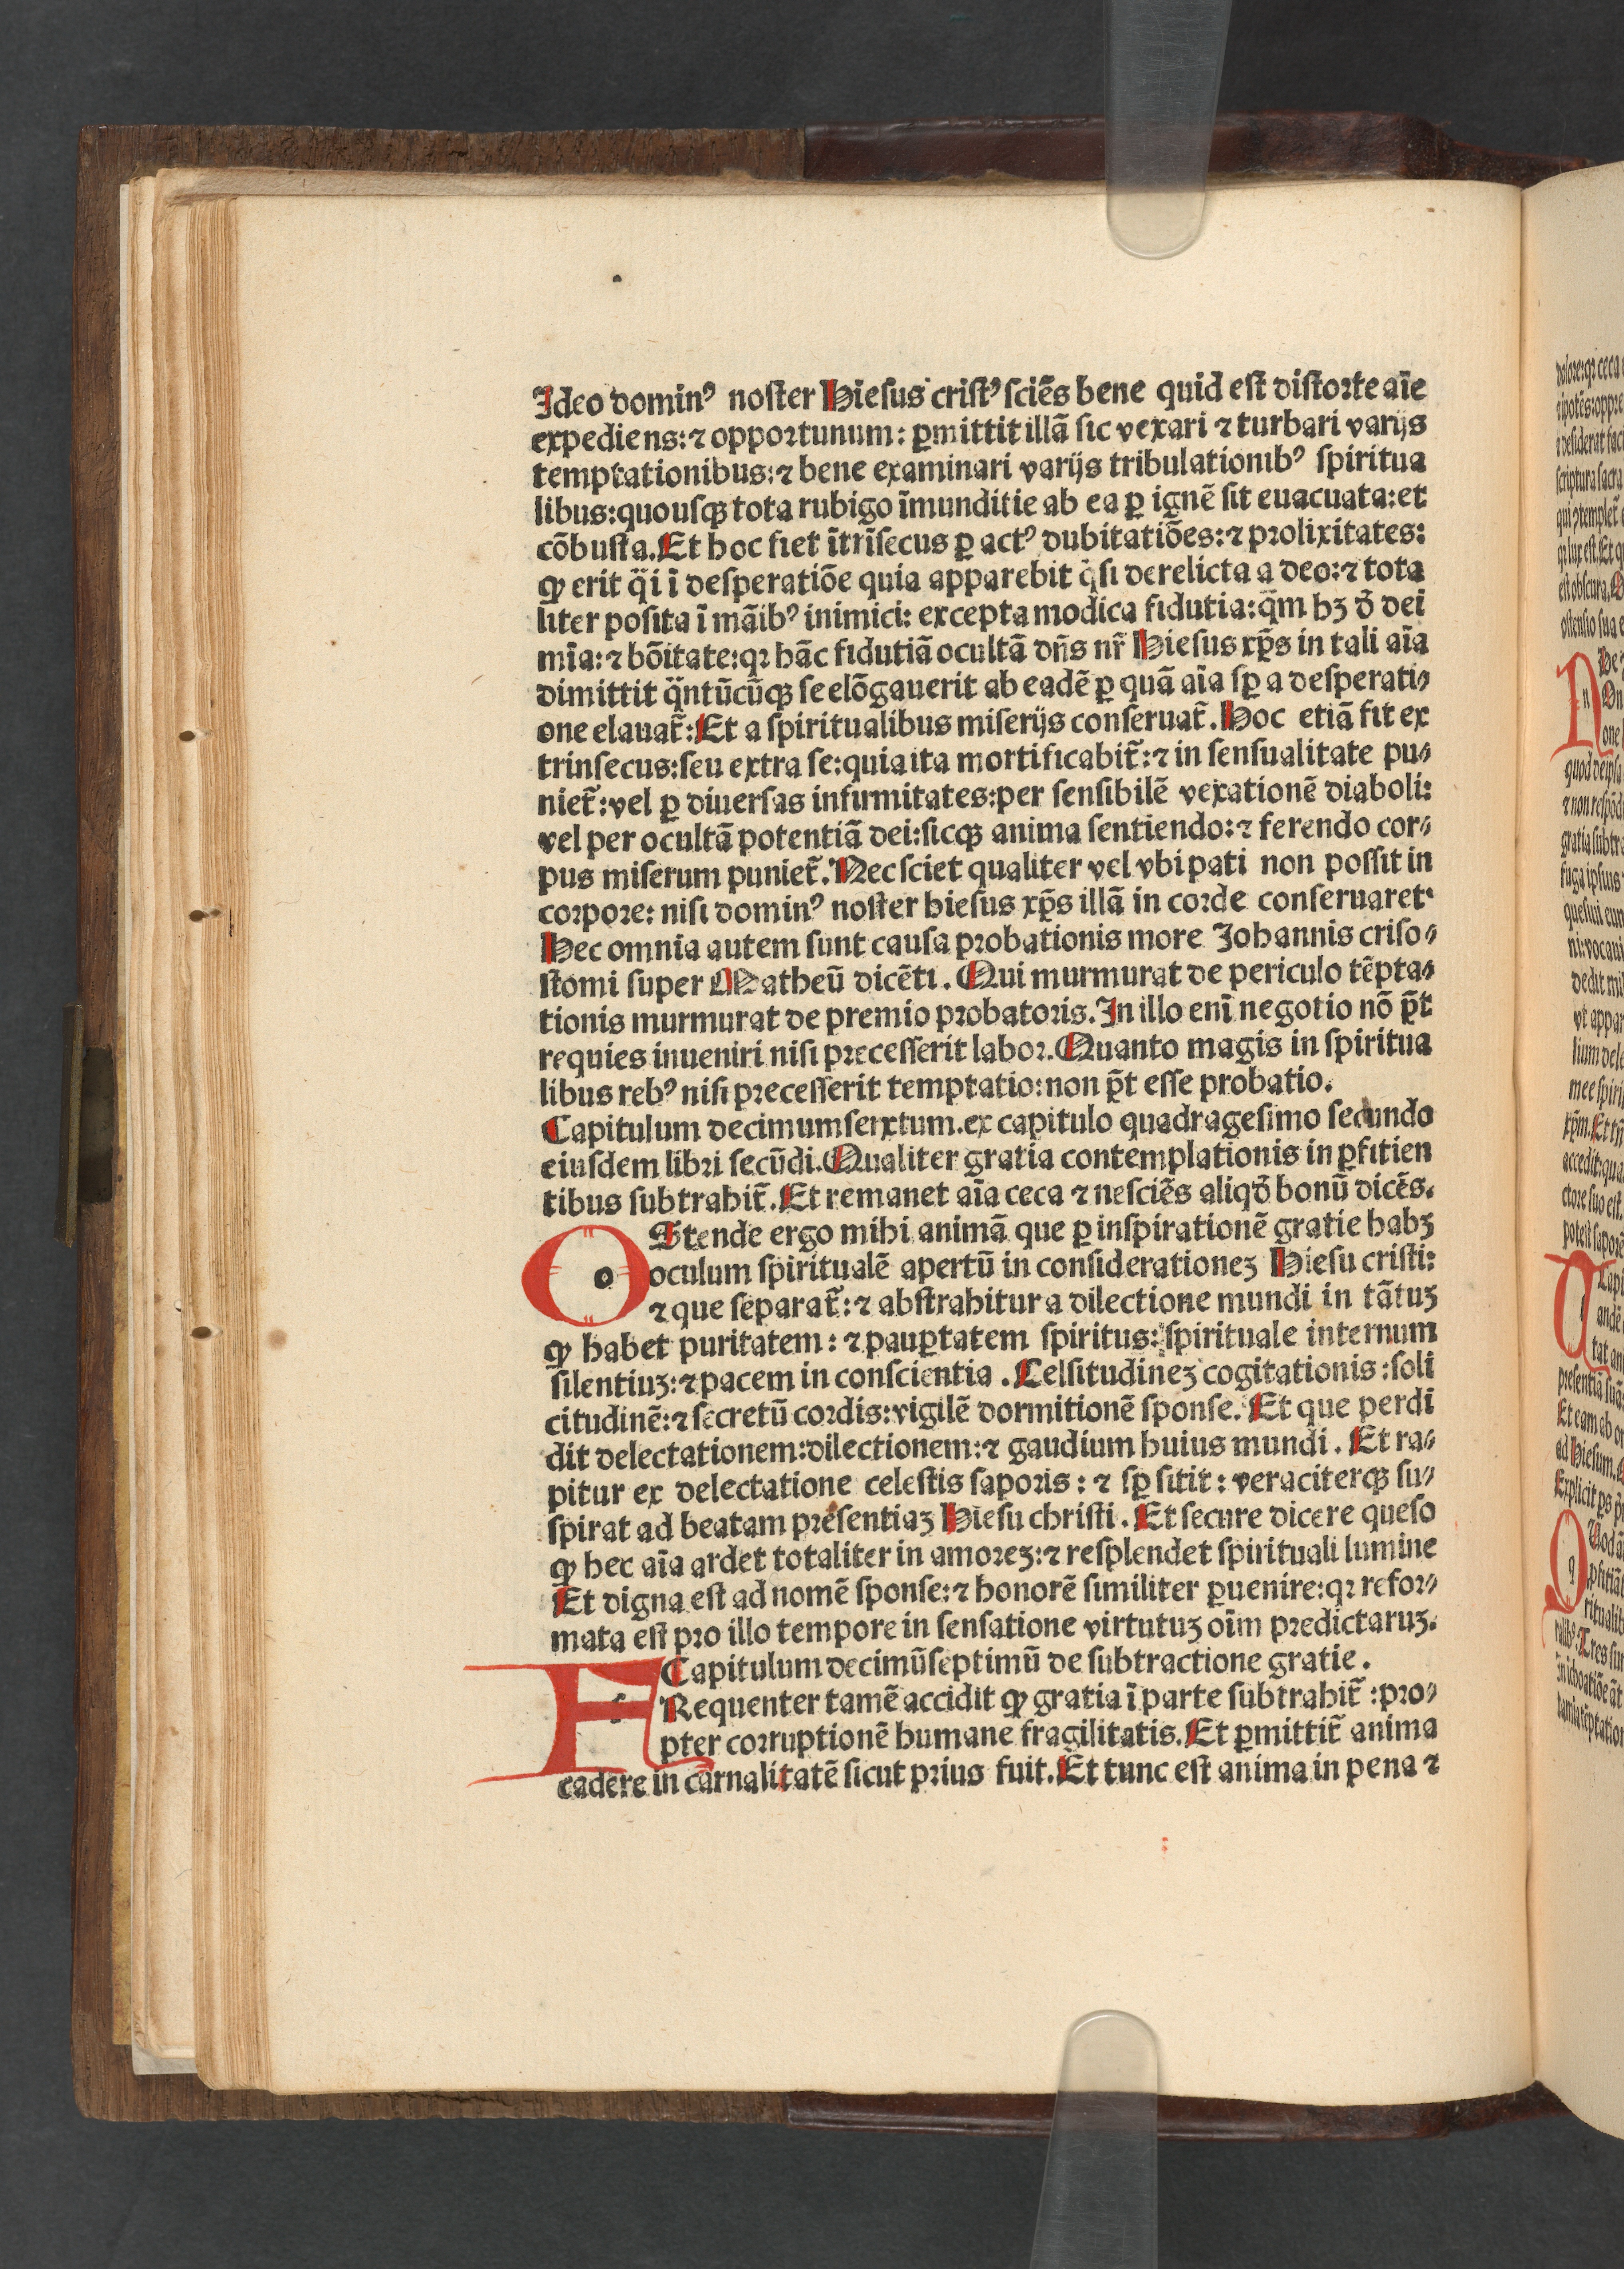 Ideo dominꝰ noster Hiesus cristꝰ sciẽs bene quid est distorte aĩe
expediens:⁊ opportunum: ꝑmittit illã sic vexari ⁊ turbari varijs
temptationibus:⁊ bene examinari varijs tribulationibꝰ spiritua
libus:quousqꝫ tota rubigo ĩmunditie ab ea ꝑ ignẽ sit euacuata:et
cõbusta.Et hoc fiet ĩtrĩsecus ꝑ actꝰ dubitatiões:⁊ prolixitates:
ꝙ erit q̃i ĩ desperatiõe quia apparebit q̃si derelicta a deo:⁊ tota
liter posita ĩ mãibꝰ inimici: excepta modica fidutia:q̃m hꝫ đ dei
mĩa:⁊ bõitate:qꝛ hãc fidutiã ocultã dñs nr̃ Hiesus xp̃s in tali aĩa
dimittit q̃ntũcũqꝫ se elõgauerit ab eadẽ ꝑ quã aĩa sꝑ a desperati⸗
one elauat̃:Et a spiritualibus miserijs conseruat̃.Hoc etiã fit ex
trinsecus:seu extra se:quia ita mortificabit̃:⁊ in sensualitate pu⸗
niet̃:vel ꝑ diuersas infirmitates:per sensibilẽ vexationẽ diaboli:
vel per ocultã potentiã dei:sicqꝫ anima sentiendo:⁊ ferendo cor⸗
pus miserum puniet̃.Nec sciet qualiter vel vbi pati non possit in
corpore: nisi dominꝰ noster hiesus xp̃s illã in corde conseruaret.
Hec omnia autem sunt causa probationis more Johannis criso⸗
stomi super Matheũ dicẽti. Qui murmurat de periculo tẽpta⸗
tionis murmurat de premio probatoris.In illo enĩ negotio nõ p̃t
requies inueniri nisi precesserit labor.Quanto magis in spiritua
libus rebꝰ nisi precesserit temptatio:non p̃t esse probatio.
Capitulum decimumsenxtum.ex capitulo quadragesimo secundo
eiusdem libri secũdi.Qualiter gratia contemplationis in ꝑfitien
tibus subtrahit̃.Et remanet aĩa ceca ⁊ nesciẽs aliqđ bonũ dicẽs.
O Stende ergo mihi animã que ꝑ inspirationẽ gratie habꝫ
oculum spiritualẽ apertũ in considerationeꝫ Hiesu cristi:
⁊ que separat̃:⁊ abstrahitur a dilectione mundi in tãtuꝫ
ꝙ habet puritatem: ⁊ pauꝑtatem spiritus:spirituale internum
silentiuꝫ:⁊ pacem in conscientia. Celsitudineꝫ cogitationis:soli
citudinẽ:⁊ secretũ cordis:vigilẽ dormitionẽ sponse. Et que perdi
dit delectationem:dilectionem:⁊ gaudium huius mundi. Et ra⸗
pitur ex delectatione celestis saporis: ⁊ sꝑ sitit: veraciterqꝫ su⸗
spirat ad beatam presentiaꝫ Hiesu christi. Et secure dicere queso
ꝙ hec aĩa ardet totaliter in amoreꝫ:⁊ resplendet spirituali lumine
Et digna est ad nomẽ sponse:⁊ honorẽ similiter ꝑuenire:qꝛ refor⸗
mata est pro illo tempore in sensatione virtutuꝫ oĩm predictaruꝫ.
Capitulum decimũseptimũ de subtractione gratie.
F Requenter tamẽ accidit ꝙ gratia ĩ parte subtrahit̃:pro⸗
pter corruptionẽ humane fragilitatis.Et ꝑmittit̃ anima
cadere in carnalitatẽ sicut prius fuit.Et tunc est anima in pena ⁊